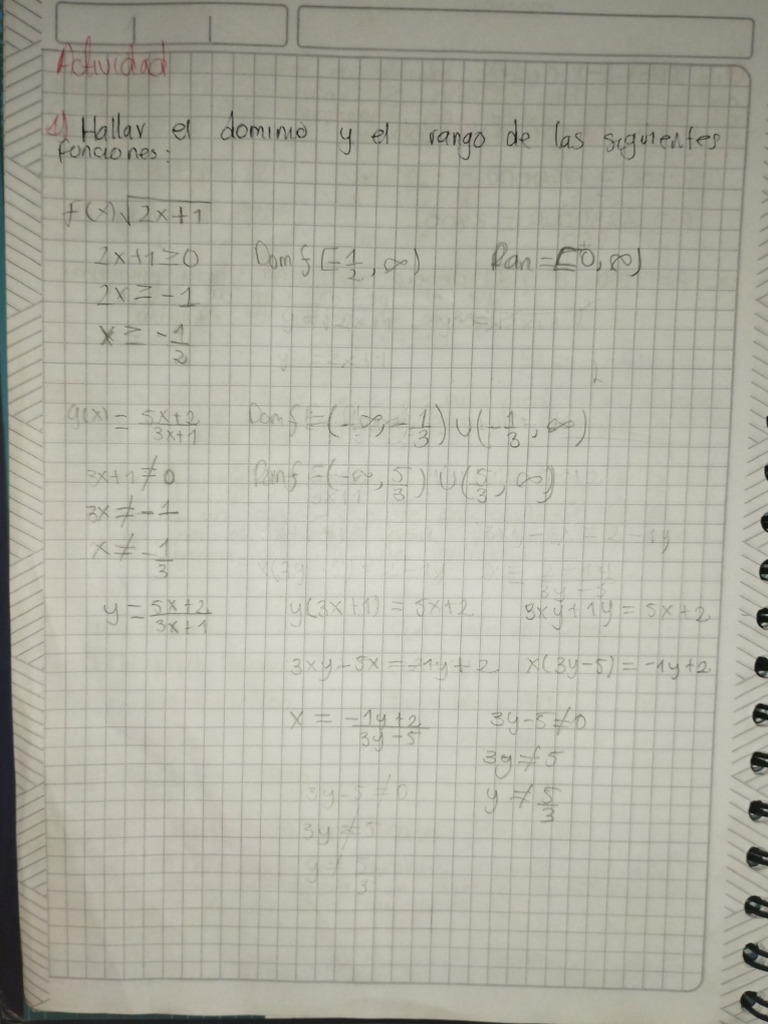 Actividad
1) Hallar el dominio y el rango de las siguientes
funciones:
f(x)√2x+1
2x+1≥0 Dom f [-1/2, ∞) Ran = [0, ∞)
2x ≥ -1
x ≥ -1/2
g(x) = 5x+2/3x+1 Dom f = (-∞, -1/3) ∪ (-1/3, ∞)
3x+1≠0 f = (-∞, 5/3) ∪ (5/3, ∞)
3x ≠ -1
x ≠ -1/3
y = 5x+2/3x+1 y(3x+1) = 5x+2 3xy+1y = 5x+2
3xy-5x = -1y+2 x(3y-5) = -1y+2
x = -1y+2/3y-5 3y-5≠0
3y≠5
y ≠ 5/3
3y-5≠0
3y≠5